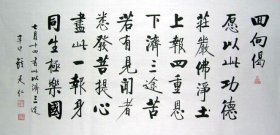 回向偈
愿以此功德
莊嚴佛淨土
上報四重恩
下濟三途苦
若有見聞者
悉發菩提心
盡此一報身
同生極樂國
七月十四書以濟三途